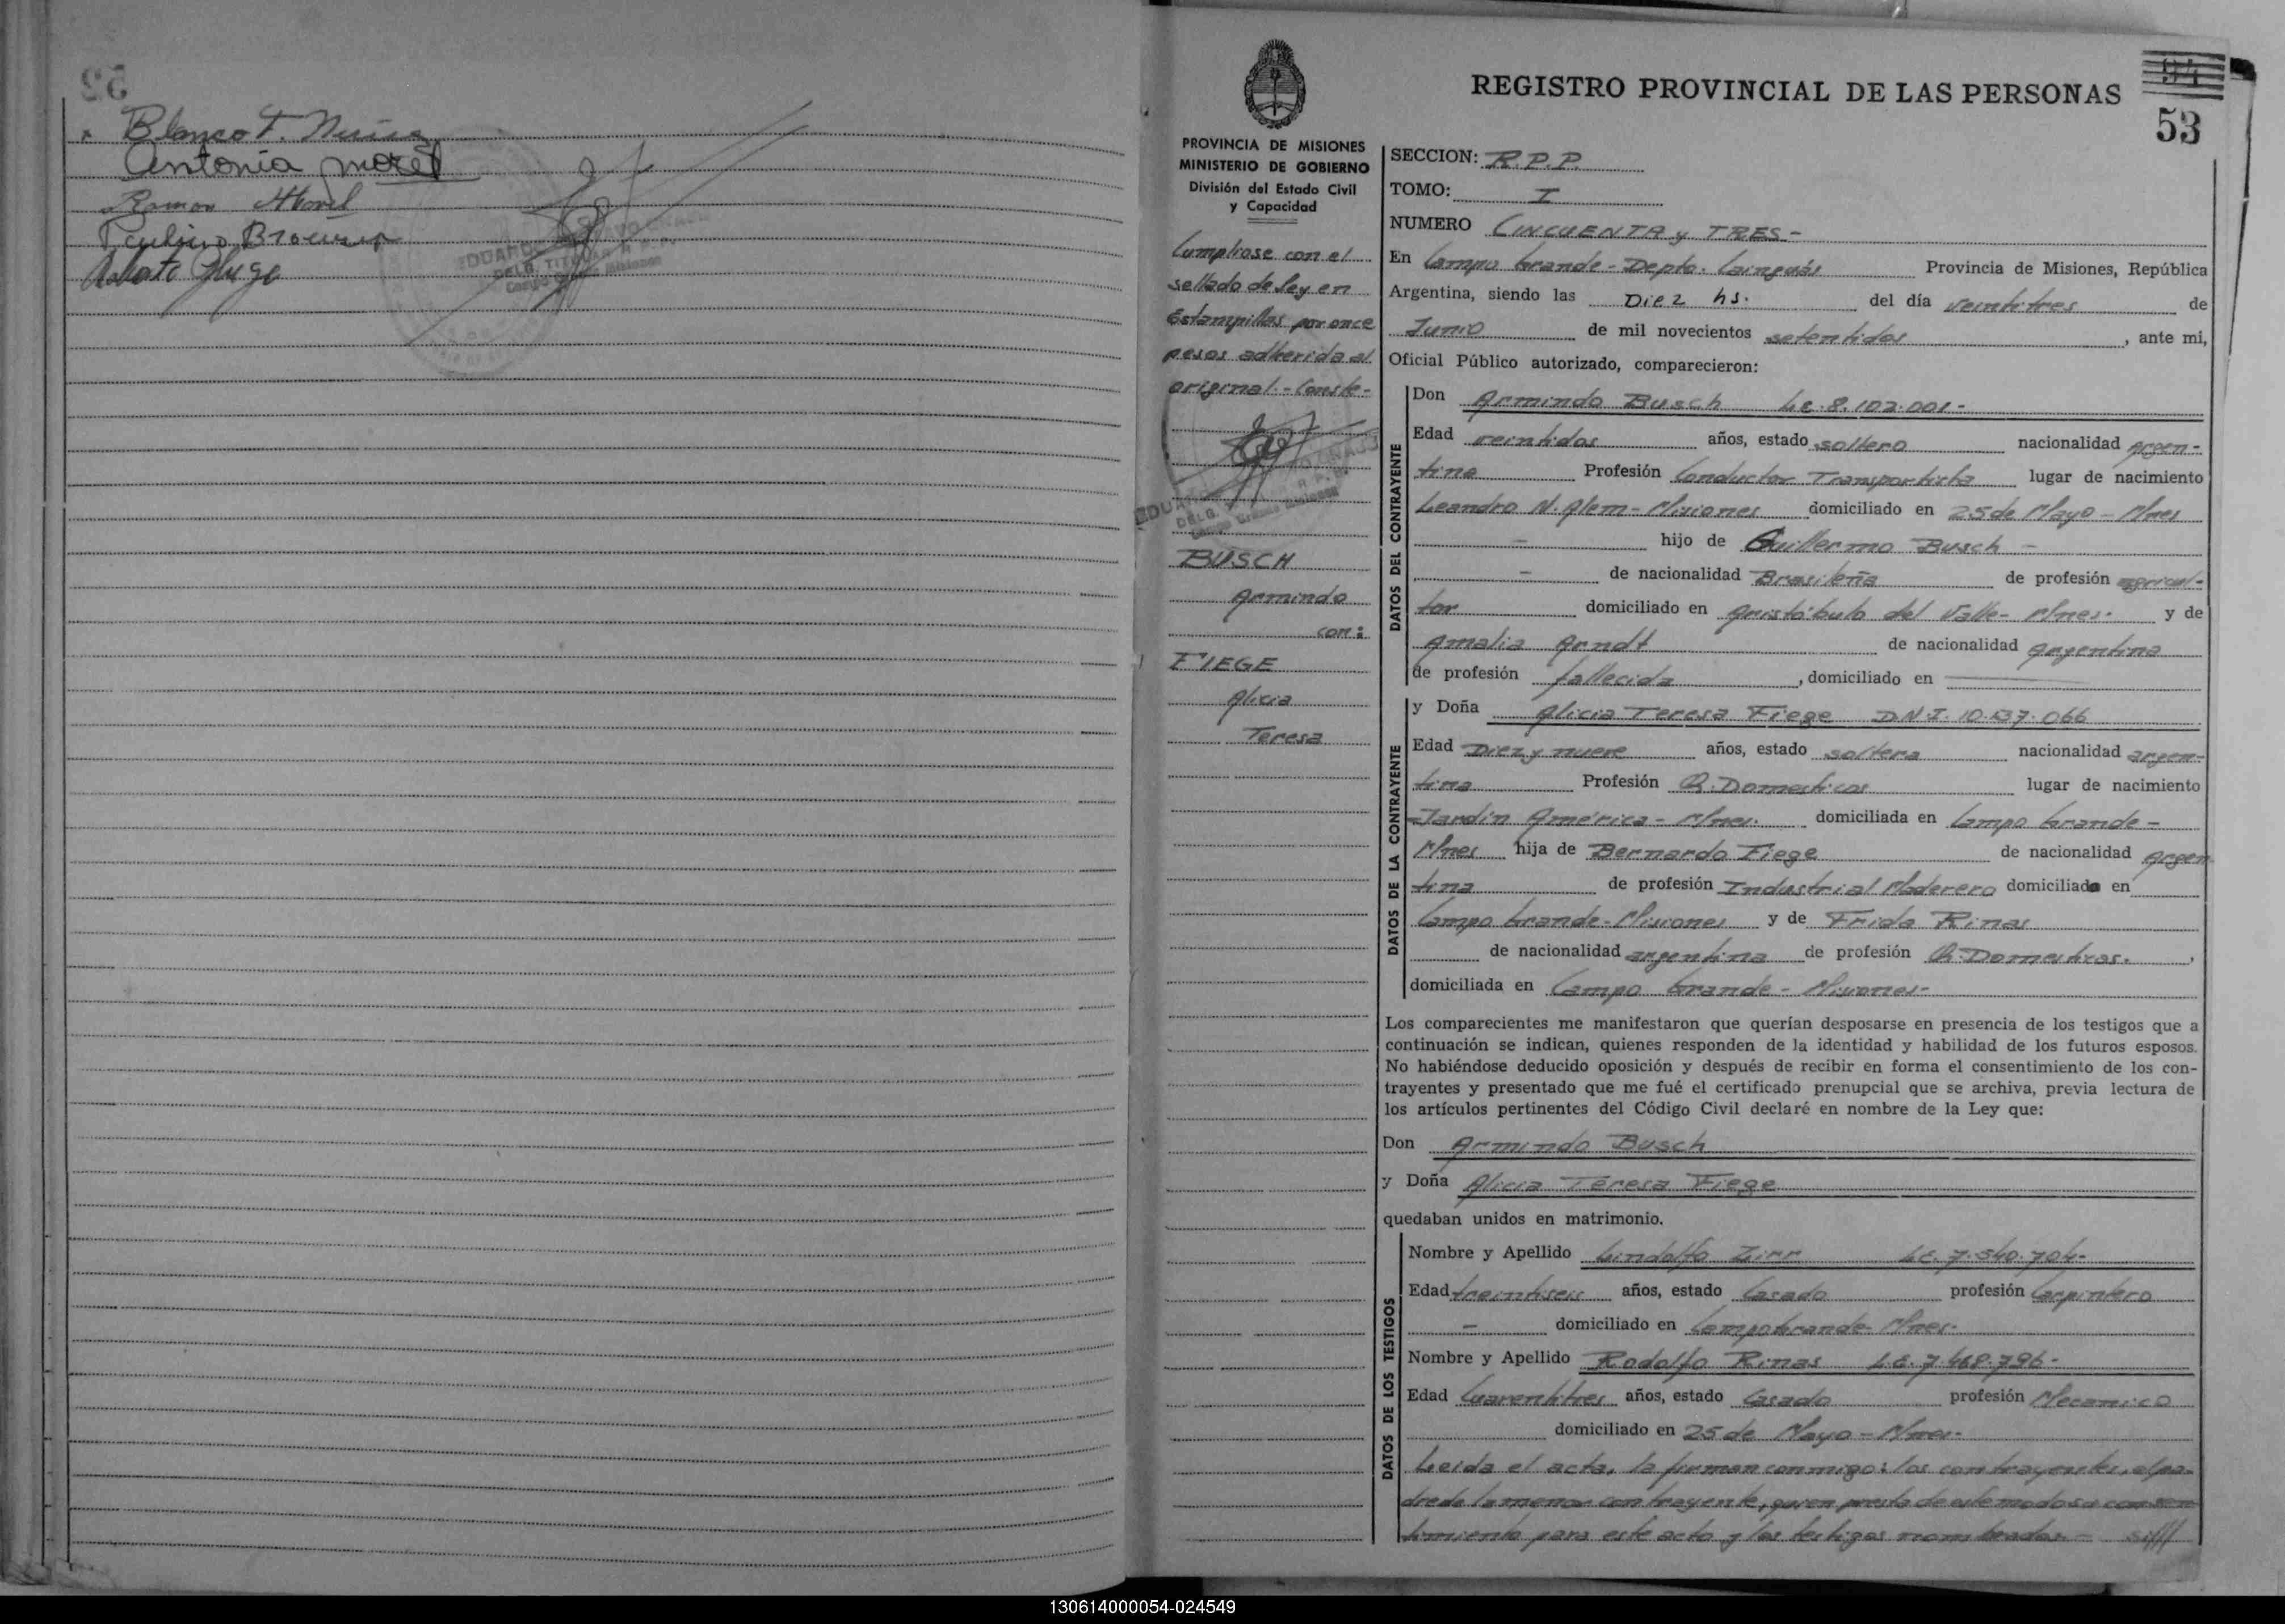 Blanca F.
Antonia Morel
Ramon Morel
53
REGISTRO PROVINCIAL DE LAS PERSONAS
PROVINCIA DE MISIONES
MINISTERIO DE GOBIERNO
División del Estado Civil
y Capacidad
Cumpliose con el
sellado de ley en
Estampillas por once
pesos adherida al
original.- Conste-
BUSCH
Armindo
con:
FIEGE
Alicia
Teresa
SECCION: R.P.P.
TOMO: I
NUMERO CINCUENTA y TRES-
En Campo Grande - Depto. Cainguás Provincia de Misiones, República
Argentina, siendo las Diez hs. del día veintitres de
Junio de mil novecientos setentidos, ante mi,
Oficial Público autorizado, comparecieron:
DATOS DEL CONTRAYENTE
Don Armindo Busch L.E. 8.102.001-
Edad veintidos años, estado soltero nacionalidad Argen-
tina Profesión Conductor Transportista lugar de nacimiento
Leandro N. Alem - Misiones domiciliado en 25 de Mayo - Mnes
- hijo de Guillermo Busch -
- de nacionalidad Brasileña de profesión agricul-
tor domiciliado en Aristóbulo del Valle - Mnes. y de
Amalia Arndt de nacionalidad Argentina
de profesión fallecida, domiciliado en
DATOS DE LA CONTRAYENTE
y Doña Alicia Teresa Fiege D.N.I. 10.537.066
Edad Diez y nueve años, estado soltera nacionalidad argen-
tina Profesión Q. Domesticos lugar de nacimiento
Jardín América - Mnes. domiciliada en Campo Grande -
Mnes hija de Bernardo Fiege de nacionalidad Argen
tina de profesión Industrial Maderero domiciliado en
Campo Grande - Misiones y de Frida Rinas
de nacionalidad argentina de profesión Q. Domesticos.,
domiciliada en Campo Grande - Misiones-
Los comparecientes me manifestaron que querían desposarse en presencia de los testigos que a
continuación se indican, quienes responden de la identidad y habilidad de los futuros esposos.
No habiéndose deducido oposición y después de recibir en forma el consentimiento de los con-
trayentes y presentado que me fué el certificado prenupcial que se archiva, previa lectura de
los artículos pertinentes del Código Civil declaré en nombre de la Ley que:
Don Armindo Busch
y Doña Alicia Teresa Fiege
quedaban unidos en matrimonio.
DATOS DE LOS TESTIGOS
Nombre y Apellido Lindolfo Zirr L.E. 7.540.704-
Edad treintiseis años, estado Casado profesión Carpintero
- domiciliado en Campo Grande - Mnes.
Nombre y Apellido Rodolfo Rinas L.E. 7.468.796-
Edad Cuarentitres años, estado Casado profesión Mecanico
domiciliado en 25 de Mayo - Mnes-
Leida el acta, la firman conmigo: los contrayentes, el pa-
dre de la menor contrayente, quien presta de este modo su consen
timiento para este acto y los testigos nombrados -
130614000054-024549